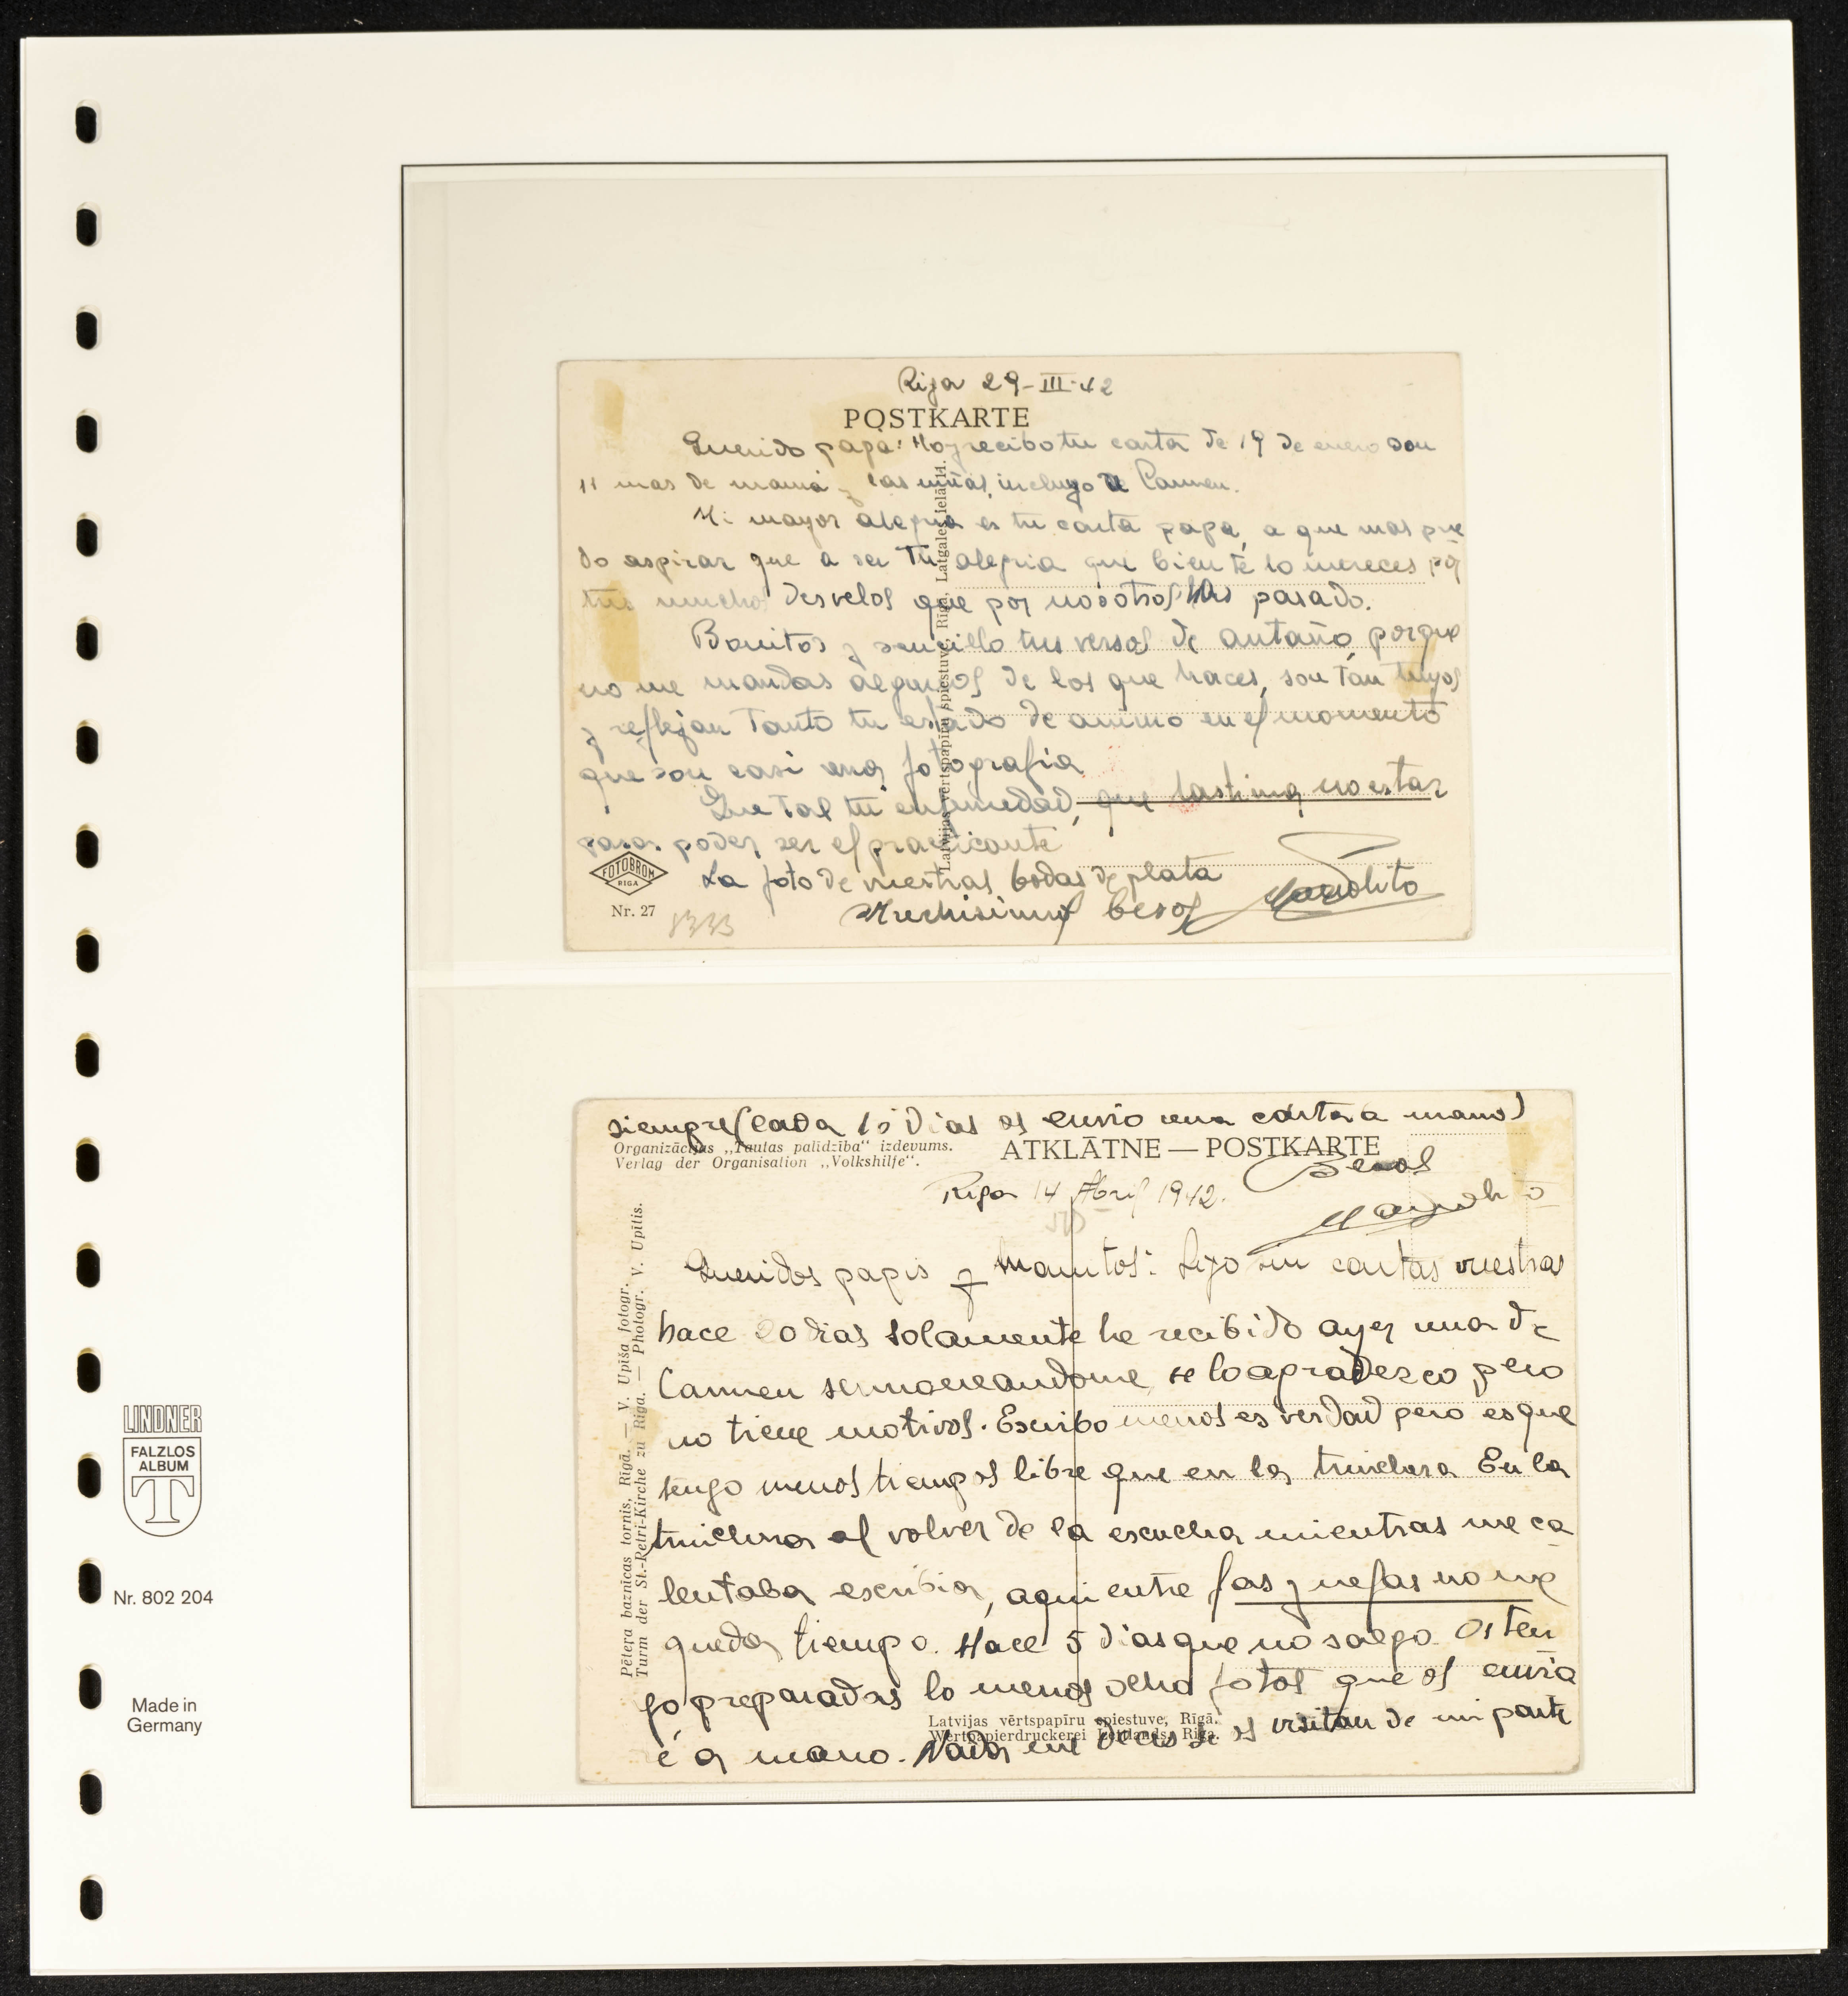 Riga 29-III-42
POSTKARTE
Querido papá: Hoy recibo tu carta de 19 de enero con
11 mas de mamá y las niñas, incluyo de Carmen.
Mi mayor alegria es tu carta papa, a que mas pue
do aspirar que a ser tu alegria que bien te lo mereces por
tus muchos desvelos que por nosotros has pasado.
Bonitos y sencillo tus versos de antaño, porque
no me mandas algunos de los que haces, son tan tuyos
y reflejan tanto tu estado de animo en el momento
que son casi una fotografia
Que tal tu enfermedad, que lastima no estar
para poder ser el practicante
La foto de vuestras bodas de plata
Muchisimos besos Manolito
FOTOBROM
RIGA
Nr. 27
Latvijas vērtspapīru spiestuve, Rīgā, Latgales ielā 11.
siempre (cada 15 dias os envio una carta a mano)
Organizācijas „Tautas palīdzība“ izdevums.
Verlag der Organisation „Volkshilfe“.
ATKLĀTNE — POSTKARTE
Besos
Manolito
Riga 14 Abril 1942.
Queridos papis y manitos: Sigo sin cartas vuestras
hace 20 dias solamente he recibido ayer una de
Carmen se lo agradezco pero
no tiene motivos. Escribo menos es verdad pero es que
tengo menos tiempos libre que en la trinchera En la
trinchera al volver de la escucha mientras me ca
lentaba escribia, aqui entre fas y nefas no me
queda tiempo. Hace 5 dias que no salgo. Os ten
go preparadas lo menos ocho fotos que os envia
é a mano. Nada me decis si os visitan de mi parte
Pētera baznīcas tornis, Rīgā. — V. Upīša fotogr.
Turm der St.-Petri-Kirche zu Riga. — Photogr. V. Upītis.
Latvijas vērtspapīru spiestuve, Rīgā.
Wertpapierdruckerei Lettlands, Riga.
LINDNER
FALZLOS
ALBUM
T
Nr. 802 204
Made in
Germany